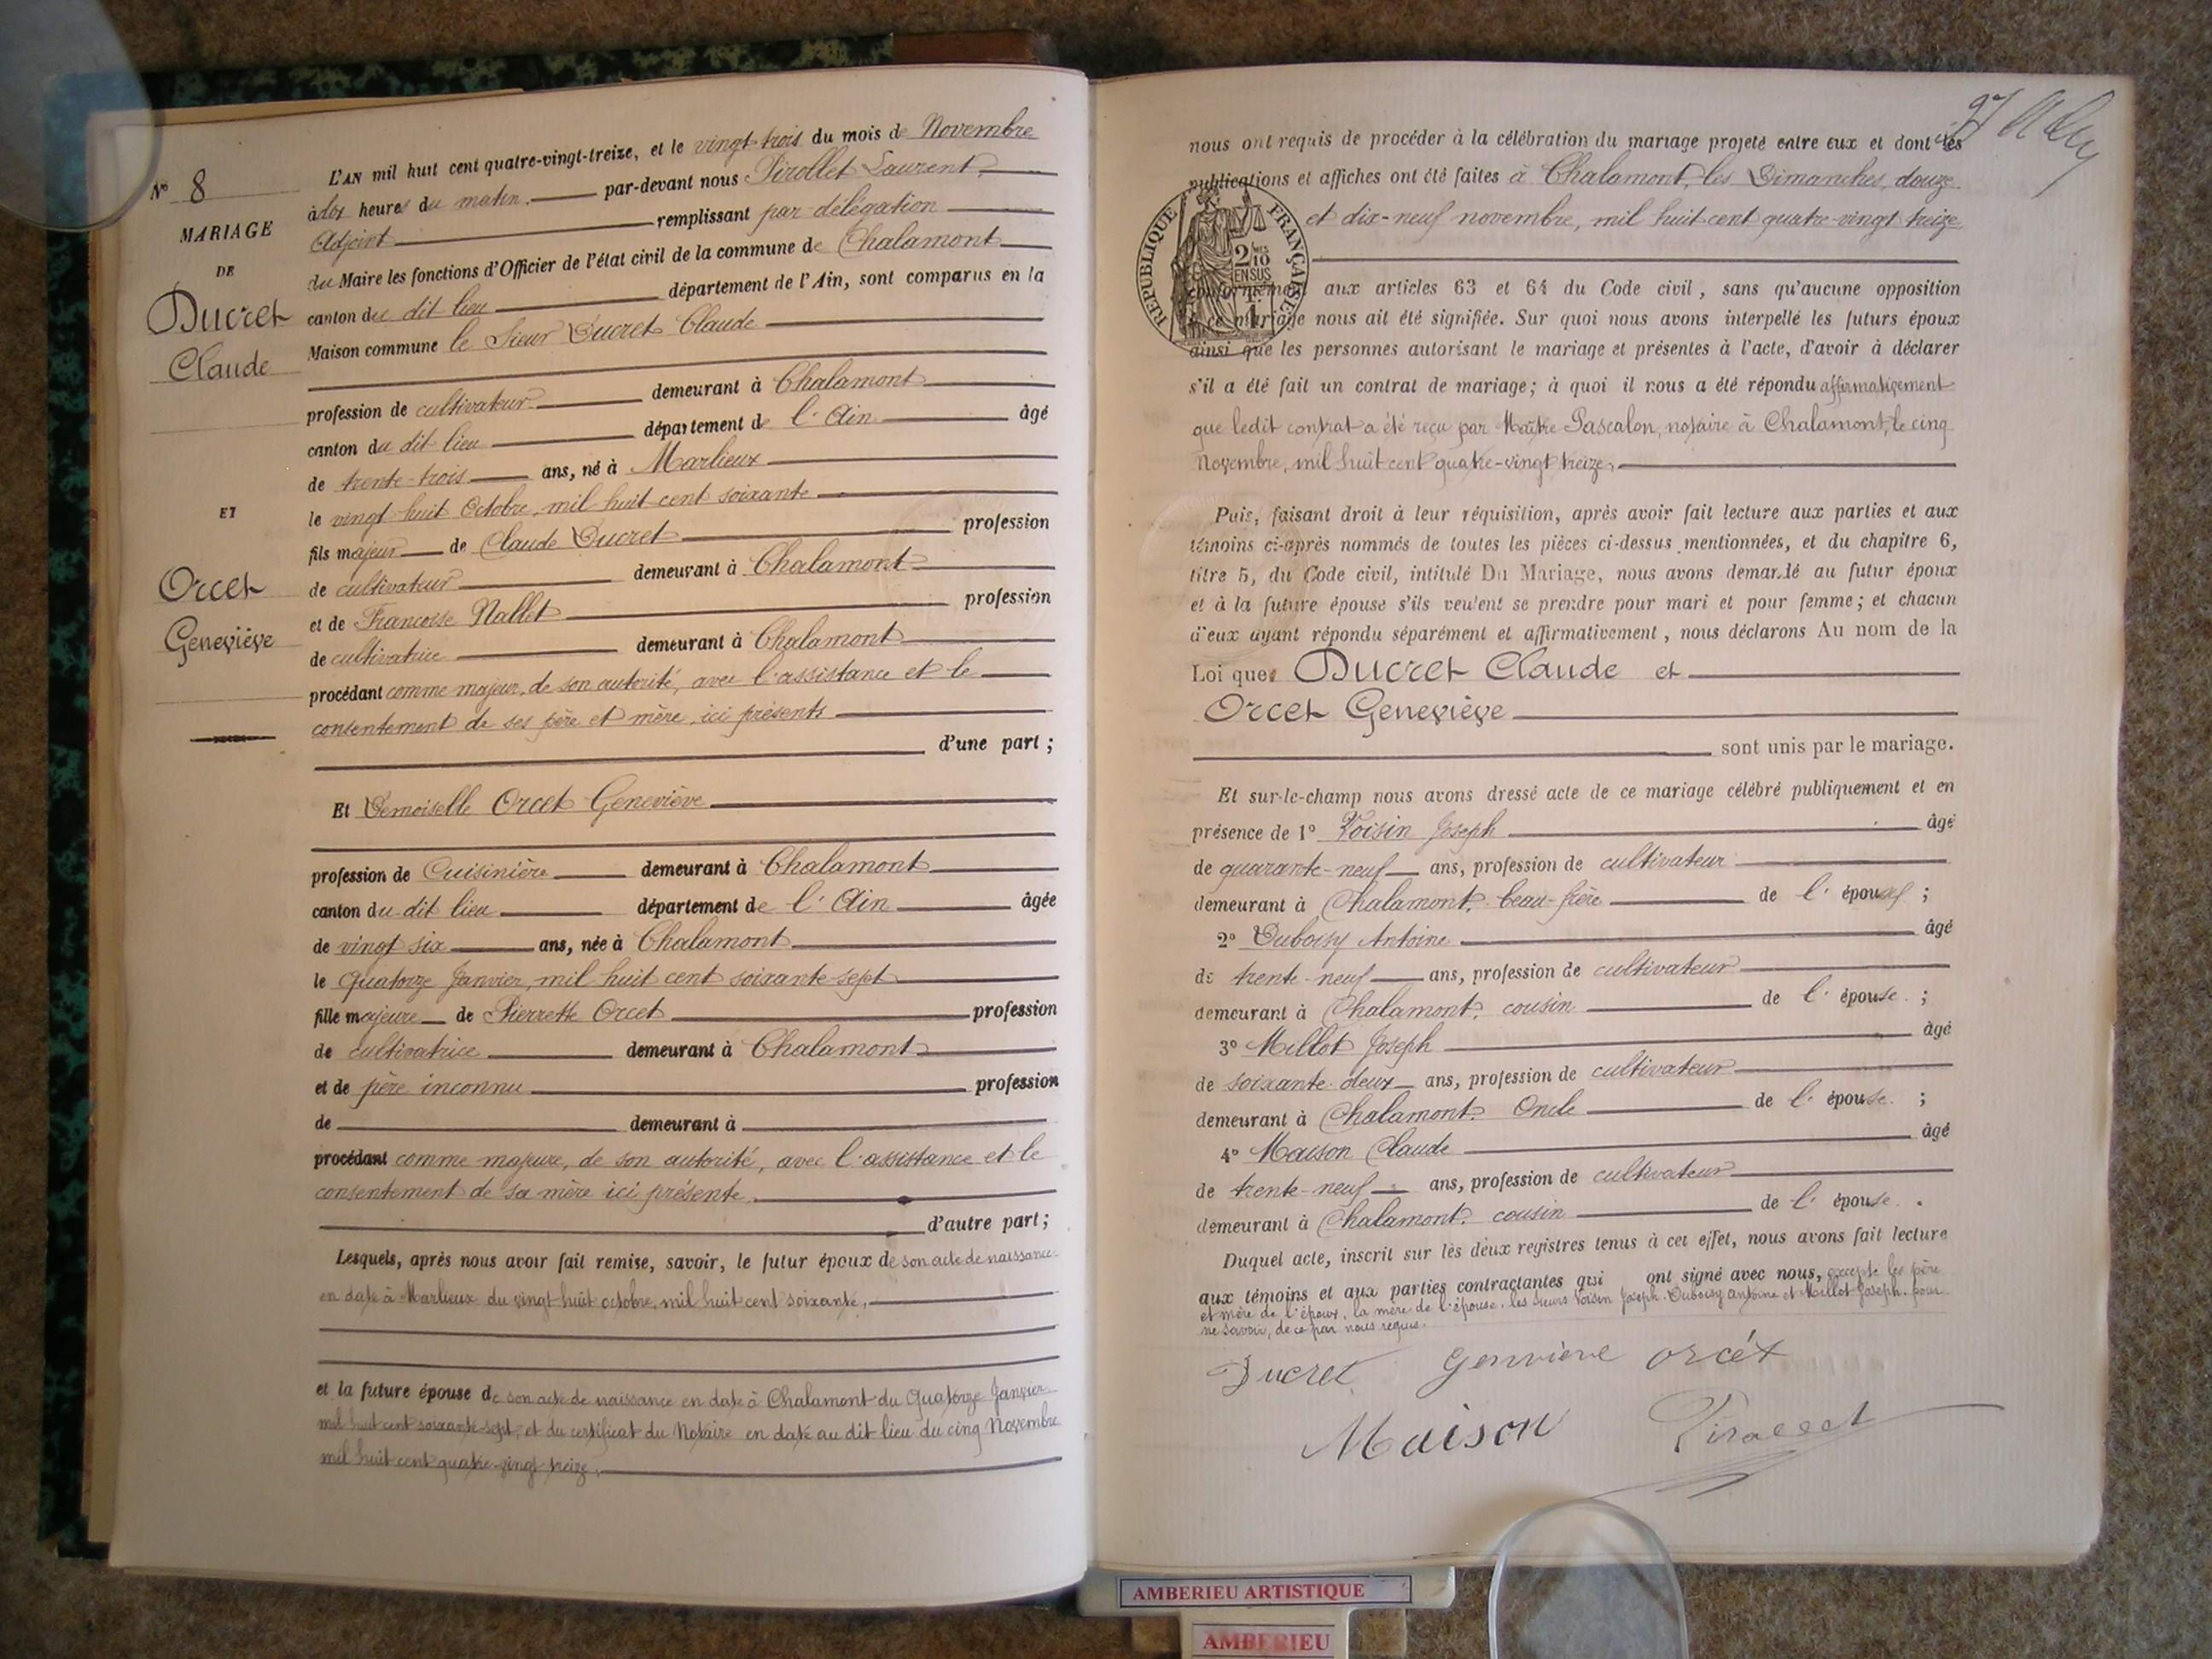 N° 8
MARIAGE
DE
Ducret
Claude
ET
Orcet
Geneviève
L'AN mil huit cent quatre-vingt-treize, et le vingt trois du mois de Novembre
à dix heures du matin. par-devant nous Pirollet Laurent,
Adjoint remplissant par délégation
du Maire les fonctions d'Officier de l'état civil de la commune de Chalamont
canton du dit lieu département de l'Ain, sont comparus en la
Maison commune le Sieur Ducret Claude
profession de cultivateur demeurant à Chalamont
canton du dit lieu département de l'Ain âgé
de trente-trois ans, né à Marlieux
le vingt huit Octobre, mil huit cent soixante
fils majeur de Claude Ducret profession
de cultivateur demeurant à Chalamont
et de Françoise Nallet profession
de cultivatrice demeurant à Chalamont
procédant comme majeur, de son autorité, avec l'assistance et le
consentement de ses père et mère, ici présents
d'une part ;
Et Demoiselle Orcet Geneviève
profession de Cuisinière demeurant à Chalamont
canton du dit lieu département de l'Ain âgée
de vingt six ans, née à Chalamont
le Quatorze Janvier, mil huit cent soixante-sept
fille majeure de Pierrette Orcet profession
de cultivatrice demeurant à Chalamont
et de père inconnu profession
de demeurant à
procédant comme majeure, de son autorité, avec l'assistance et le
consentement de sa mère ici présente.
d'autre part ;
Lesquels, après nous avoir fait remise, savoir, le futur époux de son acte de naissance
en date à Marlieux du vingt huit octobre, mil huit cent soixante,
et la future épouse de son acte de naissance en date à Chalamont du Quatorze Janvier
mil huit cent soixante-sept, et du certificat du Notaire en date au dit lieu du cinq Novembre
mil huit cent quatre-vingt treize,
97
nous ont requis de procéder à la célébration du mariage projeté entre eux et dont les
publications et affiches ont été faites à Chalamont, les Dimanches, douze
et dix-neuf novembre, mil huit-cent quatre-vingt treize
RÉPUBLIQUE FRANÇAISE
conformément aux articles 63 et 64 du Code civil, sans qu'aucune opposition
à ce mariage nous ait été signifiée. Sur quoi nous avons interpellé les futurs époux
ainsi que les personnes autorisant le mariage et présentes à l'acte, d'avoir à déclarer
s'il a été fait un contrat de mariage ; à quoi il nous a été répondu affirmativement
que ledit contrat a été reçu par Maître Pascalon, notaire à Chalamont, le cinq
Novembre, mil huit cent quatre-vingt treize,
Puis, faisant droit à leur réquisition, après avoir fait lecture aux parties et aux
témoins ci-après nommés de toutes les pièces ci-dessus mentionnées, et du chapitre 6,
titre 5, du Code civil, intitulé Du Mariage, nous avons demandé au futur époux
et à la future épouse s'ils veulent se prendre pour mari et pour femme ; et chacun
d'eux ayant répondu séparément et affirmativement, nous déclarons Au nom de la
Loi que Ducret Claude et
Orcet Geneviève
sont unis par le mariage.
Et sur-le-champ nous avons dressé acte de ce mariage célébré publiquement et en
présence de 1° Voisin Joseph âgé
de quarante-neuf ans, profession de cultivateur
demeurant à Chalamont, beau-frère de l'épouse ;
2° Duboisy Antoine âgé
de trente-neuf ans, profession de cultivateur
demeurant à Chalamont, cousin de l'épouse ;
3° Millot Joseph âgé
de soixante-deux ans, profession de cultivateur
demeurant à Chalamont, Oncle de l'épouse ;
4° Maison Claude âgé
de trente-neuf ans, profession de cultivateur
demeurant à Chalamont, cousin de l'épouse .
Duquel acte, inscrit sur les deux registres tenus à cet effet, nous avons fait lecture
aux témoins et aux parties contractantes qui ont signé avec nous, excepté les père
et mère de l'époux, la mère de l'épouse, les sieurs Voisin Joseph, Duboisy Antoine et Millot Joseph, pour
ne savoir, de ce par nous requis.
Ducret Genviève orcét
Maison Pirollet
AMBERIEU ARTISTIQUE
AMBERIEU